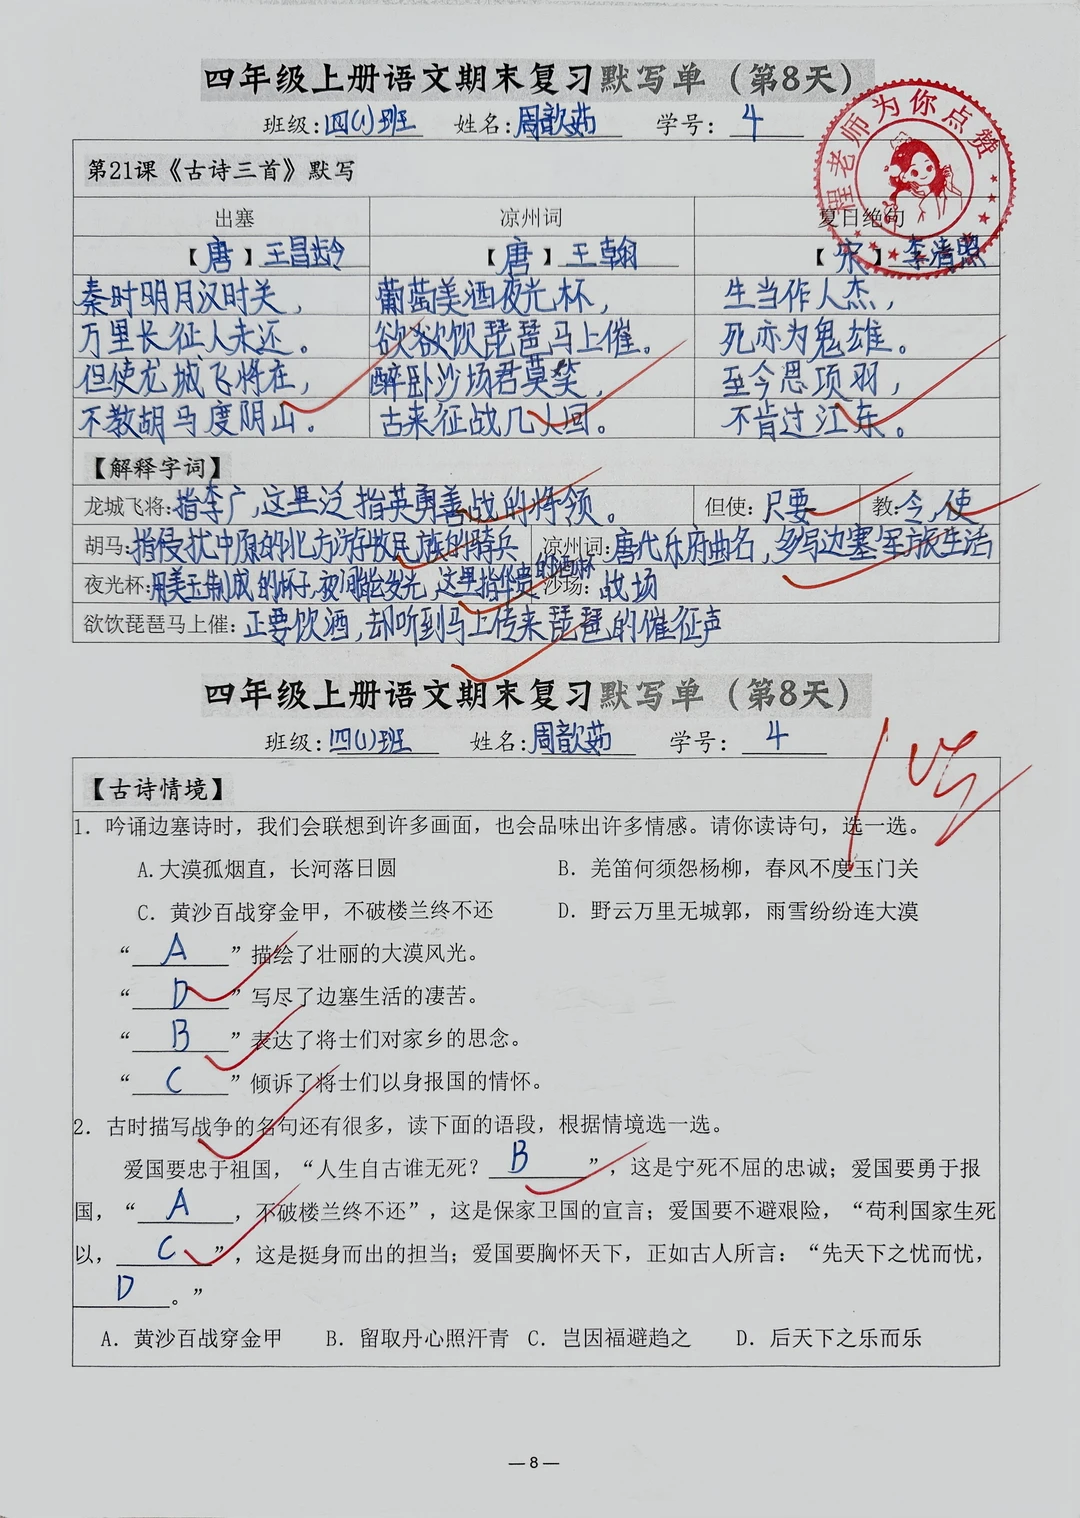 四年级上册语文期末复习默写单（第8天）
班级:四(1)班 姓名:周歆茹 学号: 4
程老师为你点赞
第21课《古诗三首》默写
出塞 凉州词 夏日绝句
【唐】王昌龄 【唐】王翰 【宋】李清照
秦时明月汉时关， 葡萄美酒夜光杯， 生当作人杰，
万里长征人未还。 欲欲饮琵琶马上催。 死亦为鬼雄。
但使龙城飞将在， 醉卧沙场君莫笑， 至今思项羽，
不教胡马度阴山。 古来征战几人回。 不肯过江东。
【解释字词】
龙城飞将:指李广,这里泛指英勇善战的将领。 但使: 只要 教:令,使
胡马:指侵扰中原的北方游牧民族的骑兵 凉州词:唐代乐府曲名,多写边塞军旅生活
夜光杯:用美玉制成的杯子,夜间能发光,这里指华贵的酒杯 沙场: 战场
欲饮琵琶马上催:正要饮酒,却听到马上传来琵琶的催征声
四年级上册语文期末复习默写单（第8天）
班级:四(1)班 姓名:周歆茹 学号: 4
【古诗情境】
1. 吟诵边塞诗时，我们会联想到许多画面，也会品味出许多情感。请你读诗句，选一选。
A.大漠孤烟直，长河落日圆 B. 羌笛何须怨杨柳，春风不度玉门关
C. 黄沙百战穿金甲，不破楼兰终不还 D. 野云万里无城郭，雨雪纷纷连大漠
“ A ”描绘了壮丽的大漠风光。
“ D ”写尽了边塞生活的凄苦。
“ B ”表达了将士们对家乡的思念。
“ C ”倾诉了将士们以身报国的情怀。
2. 古时描写战争的名句还有很多，读下面的语段，根据情境选一选。
爱国要忠于祖国，“人生自古谁无死? B ”，这是宁死不屈的忠诚；爱国要勇于报
国，“ A ，不破楼兰终不还”，这是保家卫国的宣言；爱国要不避艰险，“苟利国家生死
以， C ”，这是挺身而出的担当；爱国要胸怀天下，正如古人所言：“先天下之忧而忧，
D 。”
A. 黄沙百战穿金甲 B. 留取丹心照汗青 C. 岂因福避趋之 D. 后天下之乐而乐
— 8 —